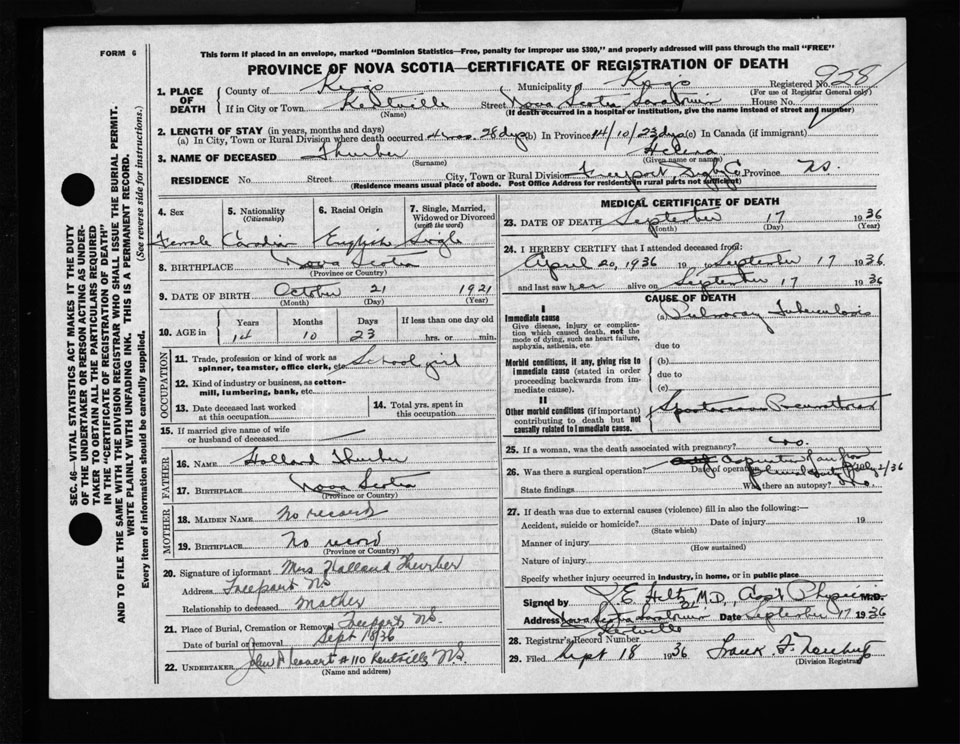 FORM 6
This form if placed in an envelope, marked "Dominion Statistics—Free, penalty for improper use $300," and properly addressed will pass through the mail "FREE"
PROVINCE OF NOVA SCOTIA—CERTIFICATE OF REGISTRATION OF DEATH
SEC. 46—VITAL STATISTICS ACT MAKES IT THE DUTY
OF THE UNDERTAKER OR PERSON ACTING AS UNDER-
TAKER TO OBTAIN ALL THE PARTICULARS REQUIRED
IN THE "CERTIFICATE OF REGISTRATION OF DEATH"
AND TO FILE THE SAME WITH THE DIVISION REGISTRAR WHO SHALL ISSUE THE BURIAL PERMIT.
WRITE PLAINLY WITH UNFADING INK. THIS IS A PERMANENT RECORD.
Every item of information should be carefully supplied. (See reverse side for instructions.)
1. PLACE OF DEATH
County of Kings Municipality of Kings Registered No. 928
(For use of Registrar General only)
If in City or Town Kentville Street Nova Scotia Sanatorium House No.
(Name) (If death occurred in a hospital or institution, give the name instead of street and number)
2. LENGTH OF STAY (in years, months and days)
(a) In City, Town or Rural Division where death occurred 4 mos. 28 dys (b) In Province 14/10/23 dys (c) In Canada (if immigrant)
3. NAME OF DECEASED Thurber Helena
(Surname) (Given name or names)
RESIDENCE No. Street City, Town or Rural Division Freeport, Digby Co Province N.S.
(Residence means usual place of abode. Post Office Address for residents in rural parts not sufficient)
4. Sex 5. Nationality (Citizenship) 6. Racial Origin 7. Single, Married, Widowed or Divorced (write the word)
Female Canadian English Single
8. BIRTHPLACE Nova Scotia
(Province or Country)
9. DATE OF BIRTH October 21 1921
(Month) (Day) (Year)
10. AGE in Years Months Days If less than one day old
14 10 23 hrs. or min.
OCCUPATION
11. Trade, profession or kind of work as spinner, teamster, office clerk, etc. School girl
12. Kind of industry or business, as cotton-mill, lumbering, bank, etc.
13. Date deceased last worked at this occupation
14. Total yrs. spent in this occupation
15. If married give name of wife or husband of deceased
FATHER
16. Name Holland Thurber
17. Birthplace Nova Scotia
(Province or Country)
MOTHER
18. Maiden Name No record
19. Birthplace No record
(Province or Country)
20. Signature of informant Mrs Holland Thurber
Address Freeport NS
Relationship to deceased Mother
21. Place of Burial, Cremation or Removal Freeport N.S.
Date of burial or removal Sept 18/36
22. Undertaker # 110 Kentville N.S.
(Name and address)
MEDICAL CERTIFICATE OF DEATH
23. DATE OF DEATH September 17 1936
(Month) (Day) (Year)
24. I HEREBY CERTIFY that I attended deceased from:
April 20, 1936 19 to September 17 1936
and last saw her alive on September 17 1936
CAUSE OF DEATH
I
Immediate cause
Give disease, injury or complication which caused death, not the mode of dying, such as heart failure, asphyxia, asthenia, etc.
(a) Pulmonary Tuberculosis
due to
Morbid conditions, if any, giving rise to immediate cause (stated in order proceeding backwards from immediate cause).
(b)
due to
(c)
II
Other morbid conditions (if important) contributing to death but not causally related to immediate cause.
Spontaneous Pneumothorax
25. If a woman, was the death associated with pregnancy? no.
26. Was there a surgical operation? Aspiration Date of operation July 2/36
State findings Was there an autopsy? No.
27. If death was due to external causes (violence) fill in also the following:—
Accident, suicide or homicide? Date of injury 19
(State which)
Manner of injury
(How sustained)
Nature of injury
Specify whether injury occurred in industry, in home, or in public place
Signed by J. E. Hiltz, M.D., Asst Physician M.D.
Address Nova Scotia Sanatorium Date September 17 1936
Kentville
28. Registrar's Record Number
29. Filed Sept 18 1936 Frank
(Division Registrar)